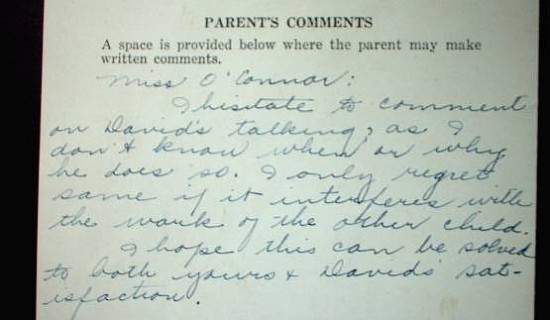 PARENT'S COMMENTS
A space is provided below where the parent may make
written comments.
Miss O'Connor:
I hesitate to comment
on David's talking, as I
don't know when or why
he does so. I only regret
same if it interferes with
the work of the other child.
I hope this can be solved
to both yours & David's sat-
isfaction.